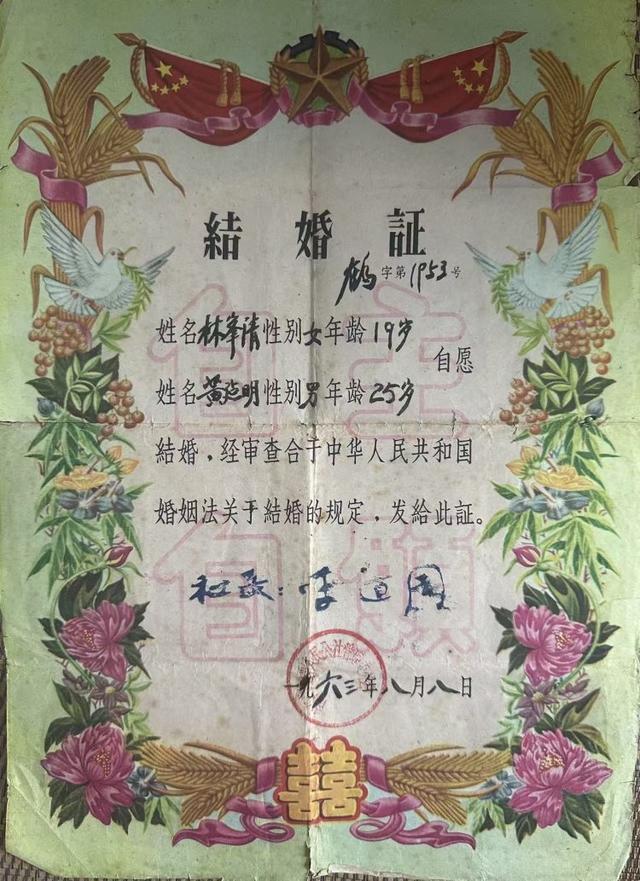 結婚証
鶴字第1953号
姓名林笔清性别女年龄19岁
自愿
姓名黄延明性别男年龄25岁
結婚，经审查合于中华人民共和国
婚姻法关于結婚的规定，发給此証。
社長：李道国
一九六三年八月八日
自主
自願
囍